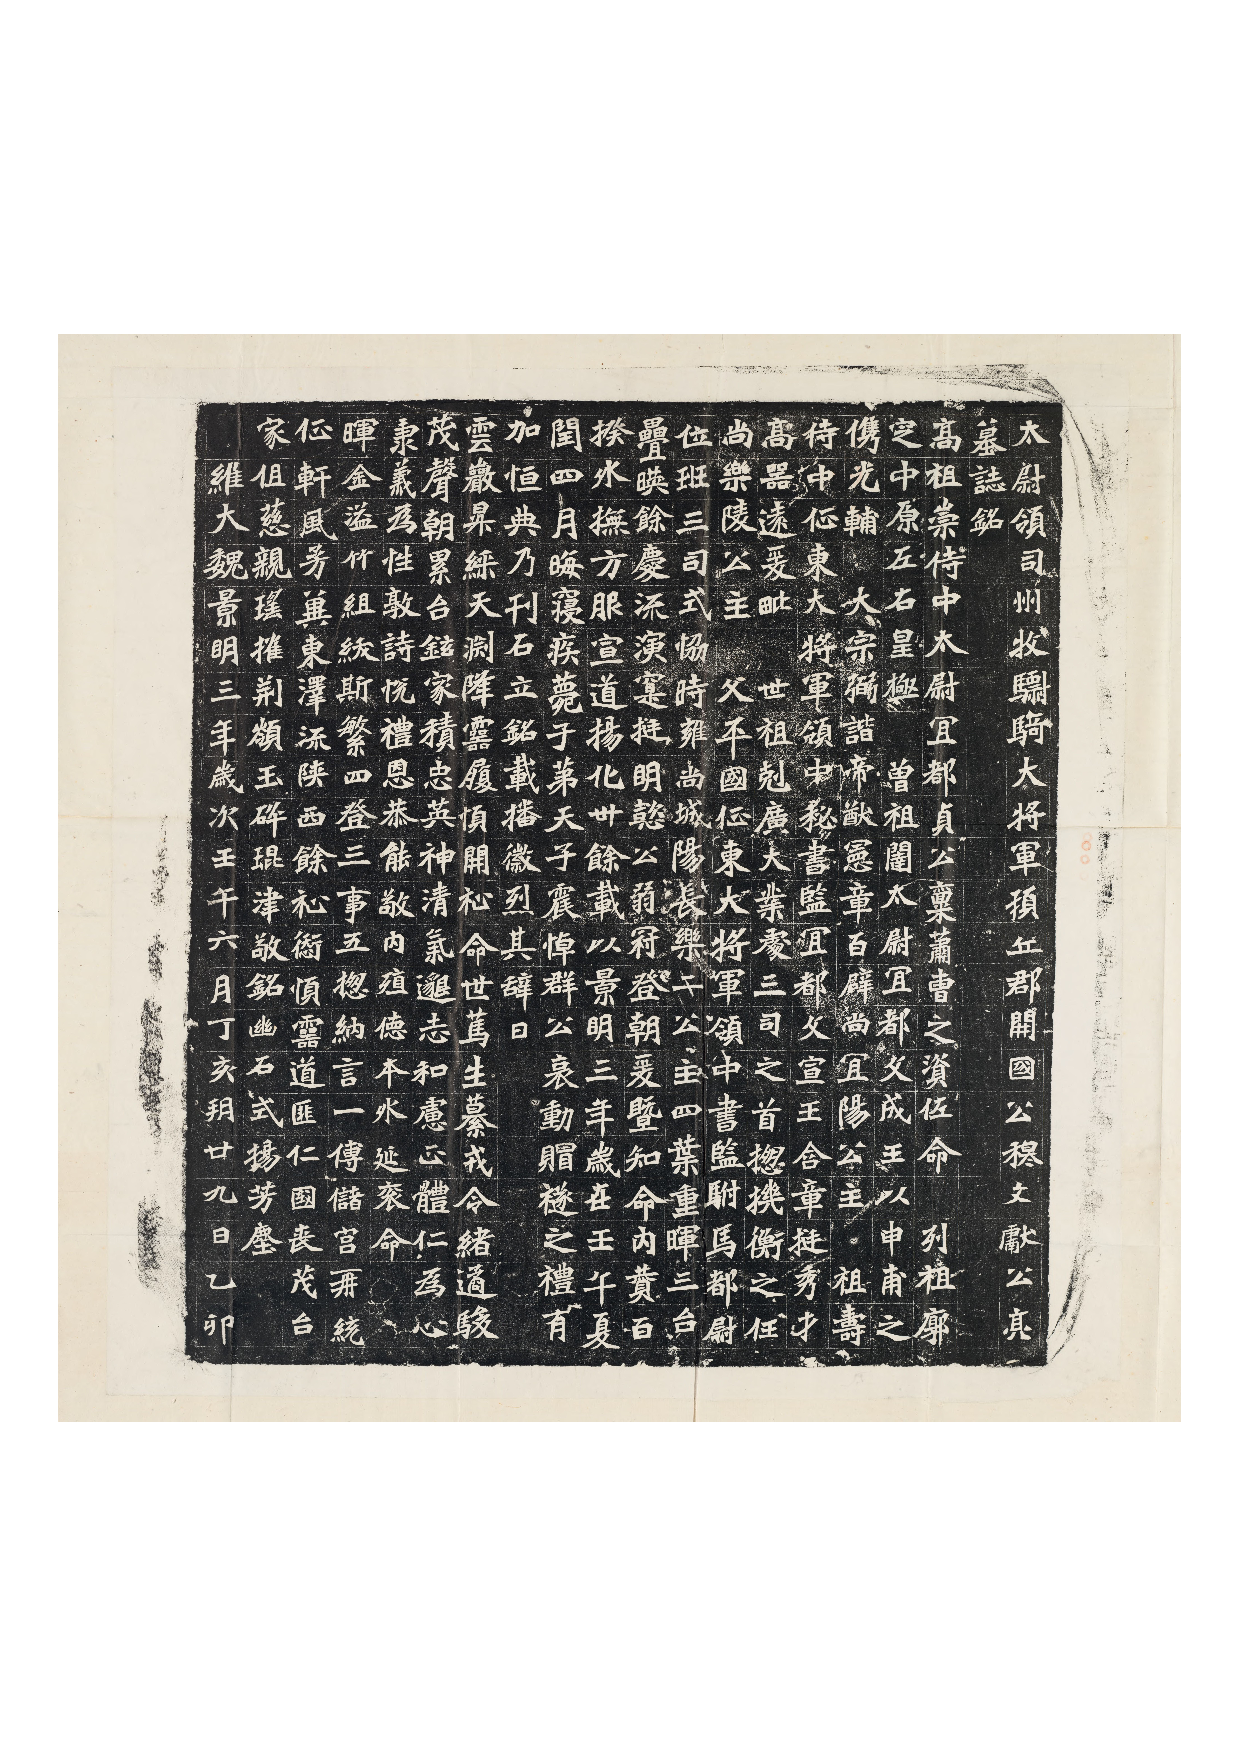 太尉領司州牧驃騎大將軍頓丘郡開國公穆文獻公亮
墓誌銘
高祖崇侍中太尉冝都貞公稟蕭曹之資佐命 列祖廓
定中原左右皇極 曽祖闥太尉冝都文成王以申甫之
儁光輔 大宗弼諧帝猷憲章百辟尚冝陽公主 祖壽
侍中征東大將軍領中秘書監冝都文宣王含章挻秀才
高器遠爰毗 世祖剋廣大業處三司之首揔機衡之任
尚樂陵公主 父平國征東大將軍領中書監駙馬都尉
位班三司式協時雍尚城陽長樂二公主四葉重暉三台
疊暎餘慶流演寔挻明懿公弱冠登朝爰曁知命內賛百
揆外撫方服宣道揚化卅餘載以景明三年歲在壬午夏
閏四月晦寢疾薨子苐天子震悼群公哀動賵禭之禮有
加恒典乃刊石立銘載播徽烈其辭曰
雲巖昇綵天渊降靈履順開祉命世篤生纂戎令緒遹駿
茂聲朝累台鉉家積忠英神清氣邈志和慮正體仁為心
秉義為性敦詩恱禮恩恭能敬內殖德本外延衮命
暉金溢竹組紱斯繁四登三事五揔納言一傅儲宫再統
征軒風芳冀東澤流陝西餘祉銜順靈道匪仁國喪茂台
家伹慈親瑤摧荊巔玉碎琨津敬銘幽石式揚芳塵
維大魏景明三年歲次壬午六月丁亥朔廿九日乙卯